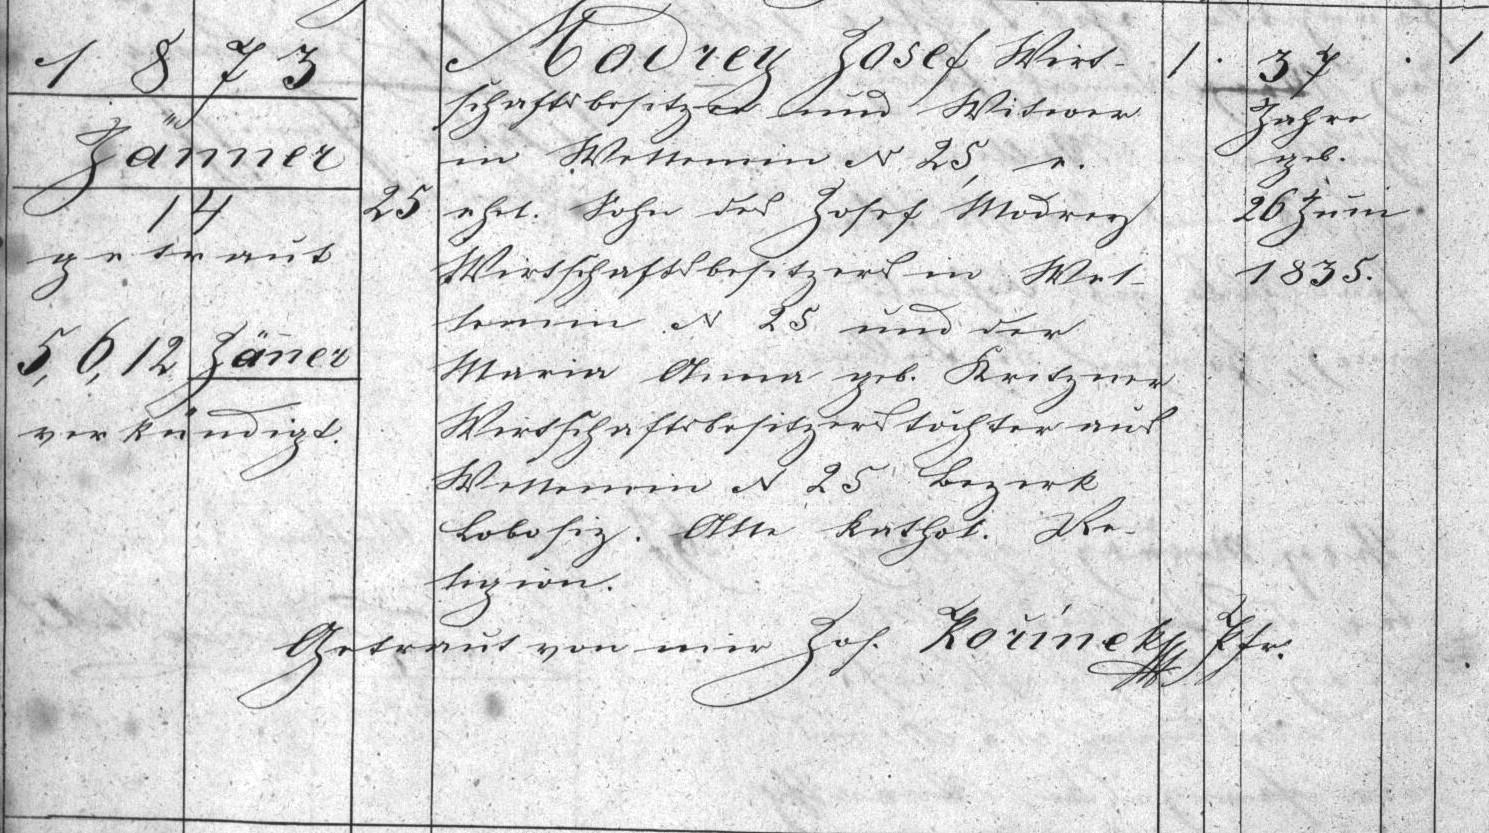 1873
Jänner
14
getraut
5, 6, 12 Jäner
verkündigt.
25
Modrey Josef Wirt-
schaftsbesitzer und Witwer
in Wettemin N 25, e.
ehel. Sohn des Josef Modrey
Wirtschaftsbesitzers in Wet-
temin N 25 und der
Maria Anna geb. Kritzner
Wirtschaftsbesitzerstochter aus
Wettemin N 25 Bezirk
Lobosiz. Alle kathol. Re-
ligion.
Getraut von mir Jos. Kořínek Pfr.
1 .
37
Jahre
geb.
26 Juni
1835.
. 1